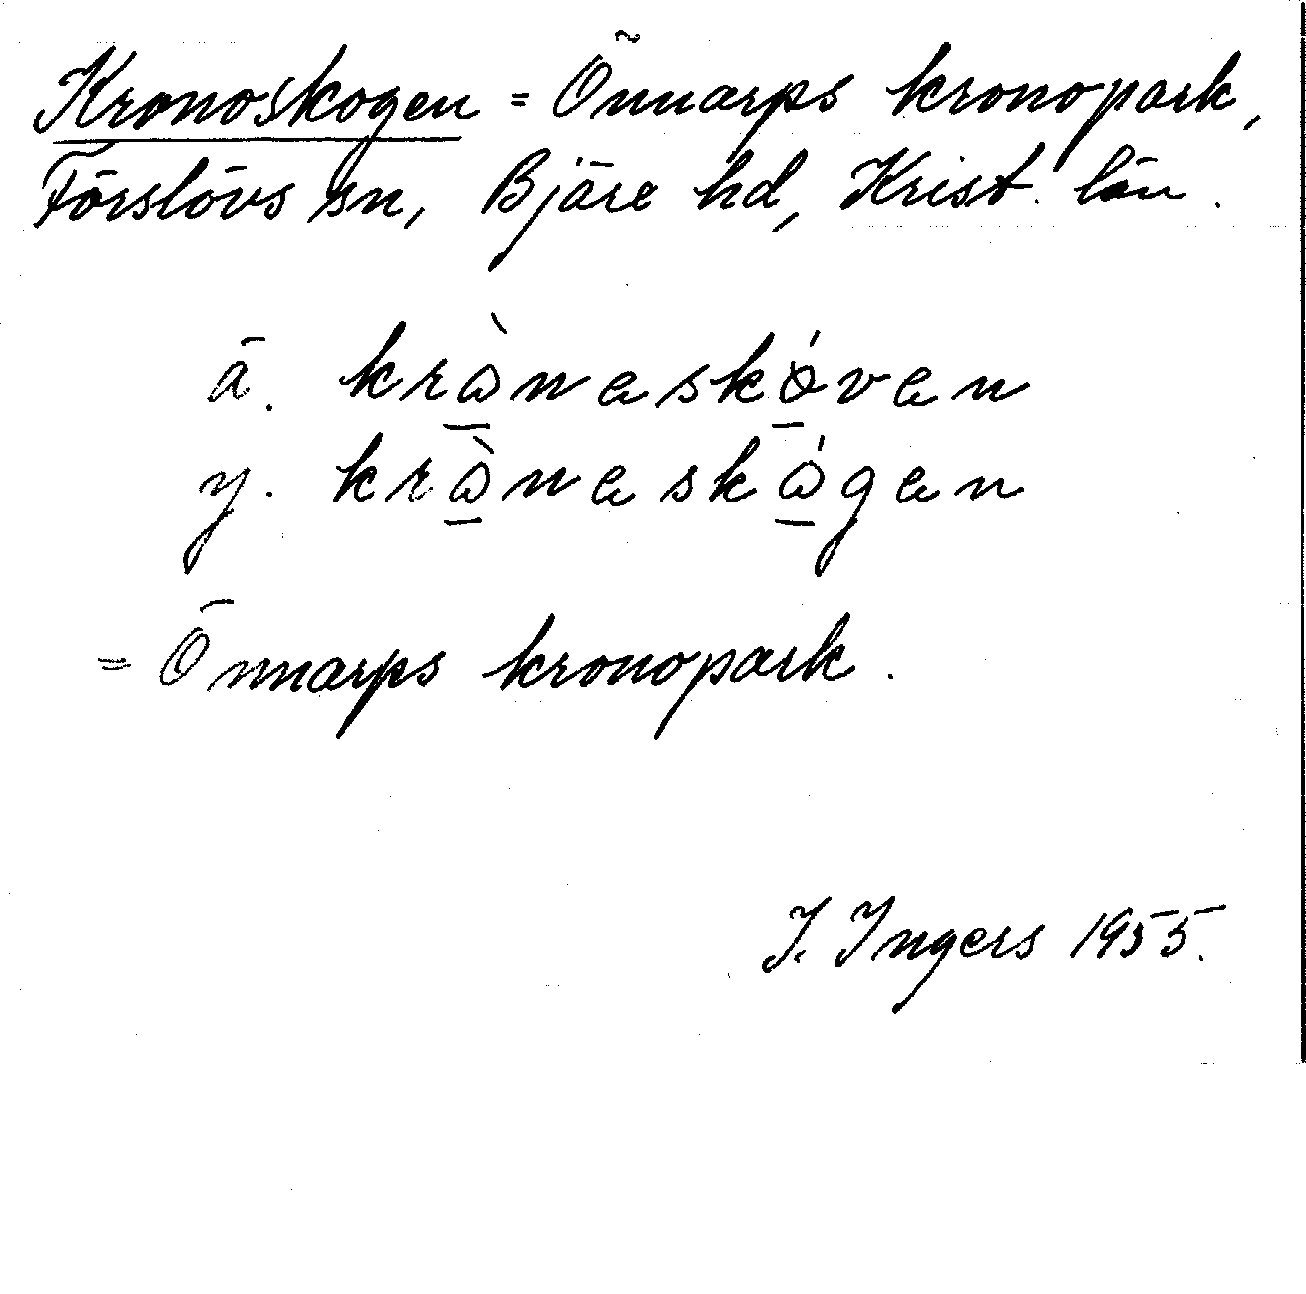 Kronoskogen = Önnarps kronopark,
Förslövs sn, Bjäre hd, Krist. län.
ä. krὼ̲neskó̲ven
y. krὼ̲neskώ̲gen
= Önnarps kronopark.
I. Ingers 1955.